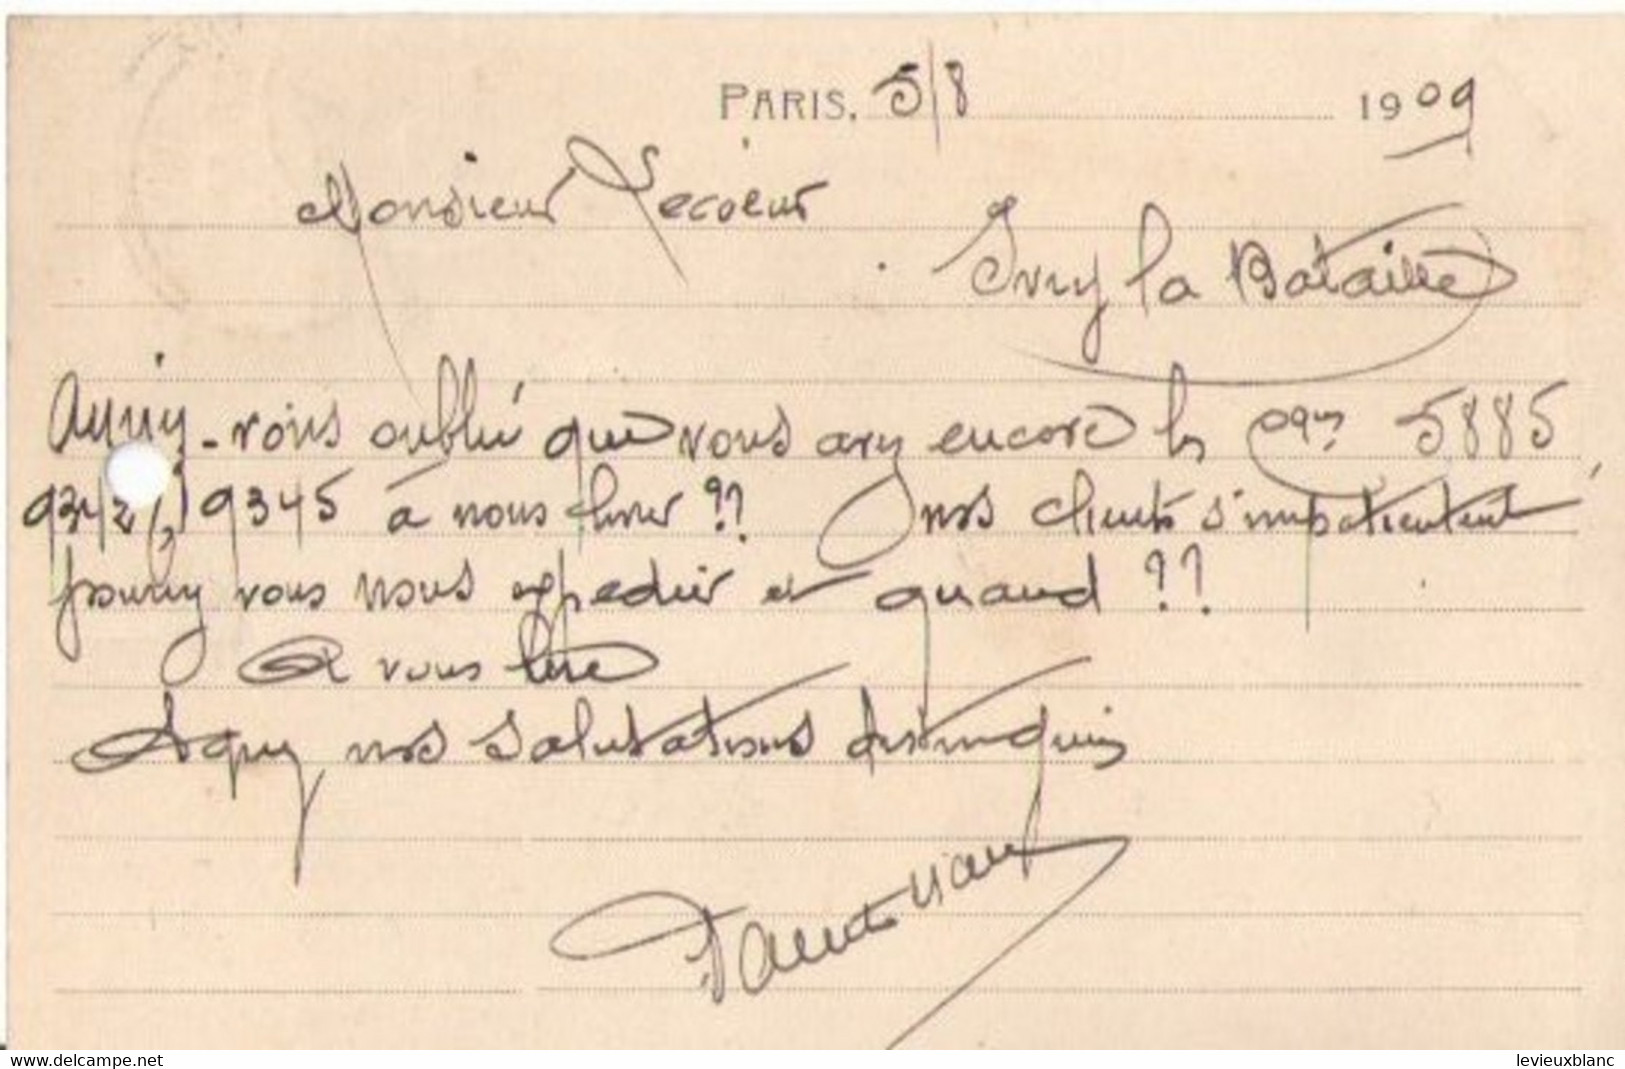 PARIS, 5/8 1909
Monsieur Lecoeur
Ivry la Bataille
Auriez-vous oublié que vous avez encore les 5885
9345 à nous livrer ?? nos clients s'impatientent
pouvez vous nous expedier et quand ??
A vous lire
Agréez nos salutations distinguées
www.delcampe.net
levieuxblanc